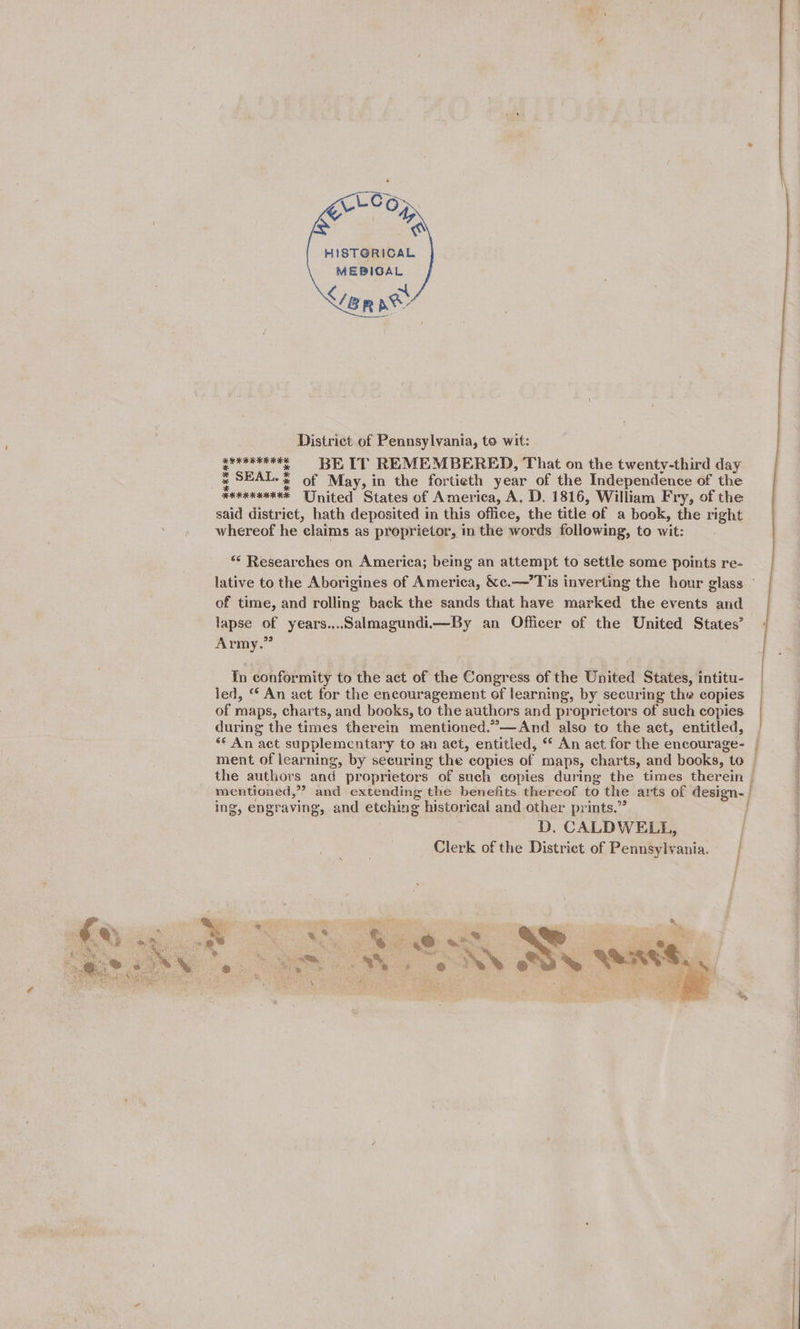 WELLCOME
HISTORICAL
MEDICAL
LIBRARY
District of Pennsylvania, to wit:
**********
* SEAL. *
**********
BE IT REMEMBERED, That on the twenty-third day
of May, in the fortieth year of the Independence of the
United States of America, A. D. 1816, William Fry, of the
said district, hath deposited in this office, the title of a book, the right
whereof he claims as proprietor, in the words following, to wit:
“ Researches on America; being an attempt to settle some points re-
lative to the Aborigines of America, &c.—’Tis inverting the hour glass
of time, and rolling back the sands that have marked the events and
lapse of years....Salmagundi.—By an Officer of the United States’
Army.”
In conformity to the act of the Congress of the United States, intitu-
led, “ An act for the encouragement of learning, by securing the copies
of maps, charts, and books, to the authors and proprietors of such copies
during the times therein mentioned.”—And also to the act, entitled,
“ An act supplementary to an act, entitled, “ An act for the encourage-
ment of learning, by securing the copies of maps, charts, and books, to
the authors and proprietors of such copies during the times therein
mentioned,” and extending the benefits thereof to the arts of design-
ing, engraving, and etching historical and other prints.”
D. CALDWELL,
Clerk of the District of Pennsylvania.